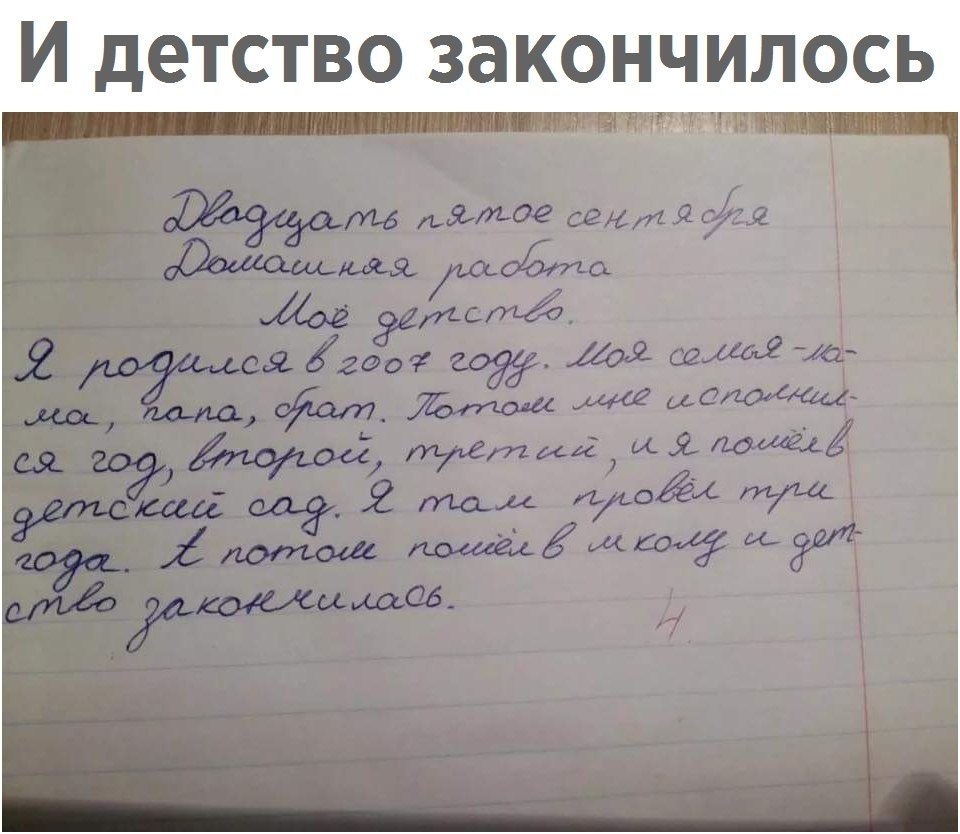 И детство закончилось
Двадцать пятое сентября
Домашняя работа
Моё детство.
Я родился в 2007 году. Моя семья - ма-
ма, папа, брат. Потом мне исполнил-
ся год, второй, третий, и я пошёл в
детский сад. Я там провёл три
года. А потом пошёл в школу и дет-
ство закончилась.
4